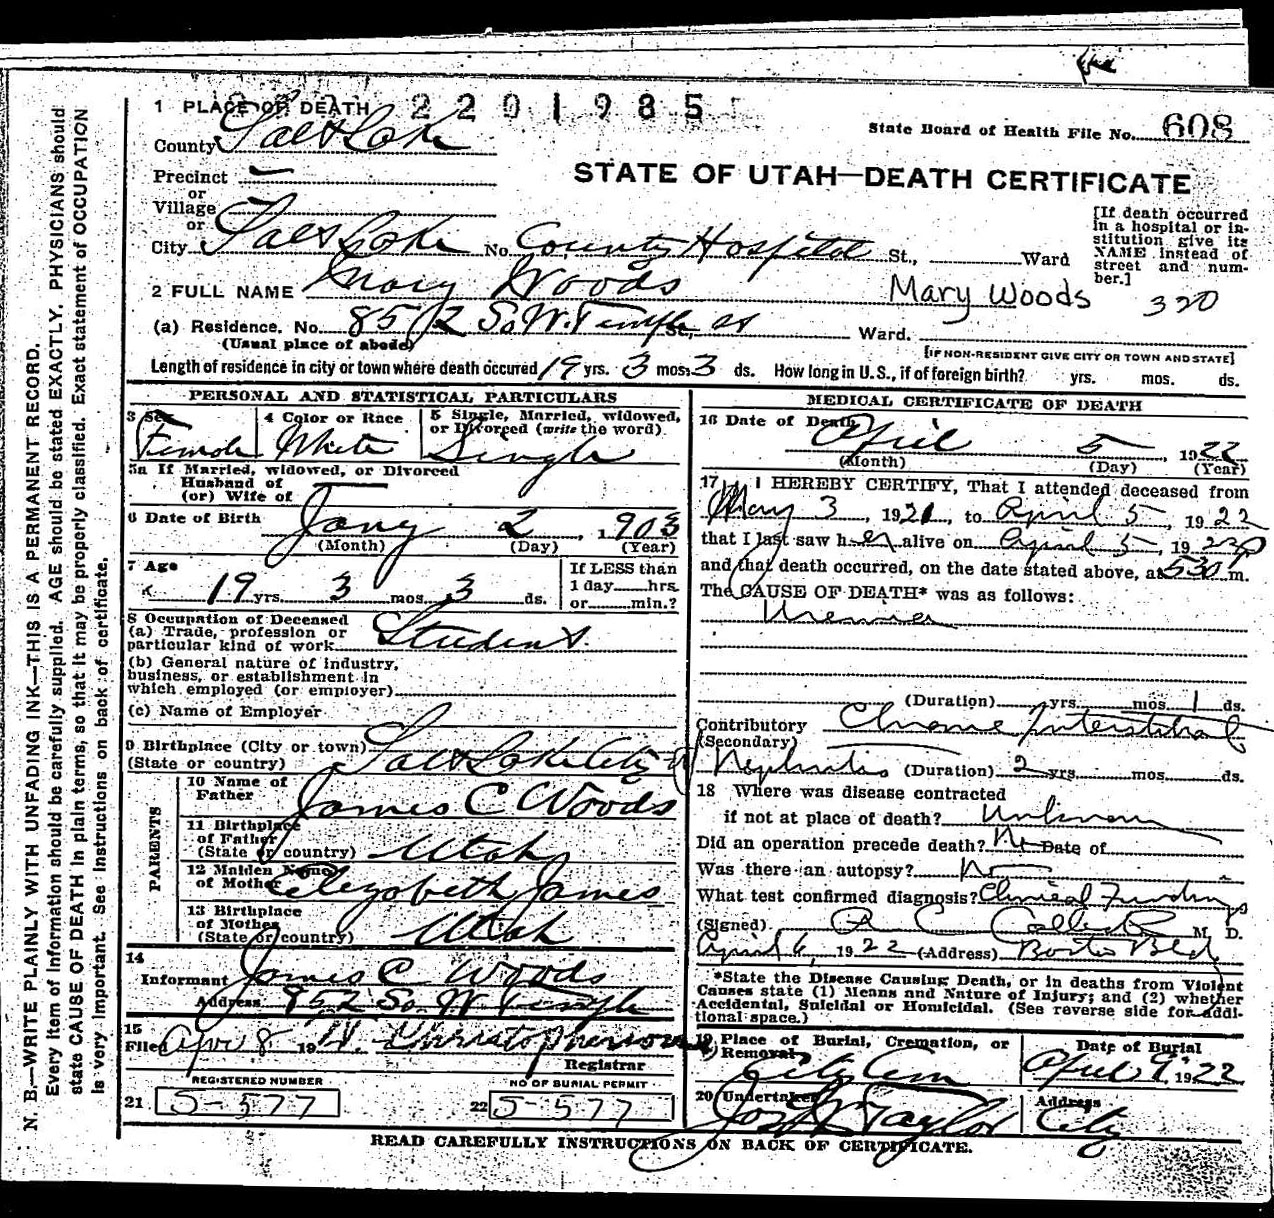 2201985
1 PLACE OF DEATH
County Salt Lake
State Board of Health File No. 608
STATE OF UTAH—DEATH CERTIFICATE
Precinct —
or
Village —
or
City Salt Lake No. County Hospital St., Ward
[If death occurred in a hospital or in-
stitution give its
NAME instead of
street and num-
ber.]
2 FULL NAME Mary Woods
Mary Woods 320
(a) Residence. No. 852 So. W. Temple St., Ward.
(Usual place of abode)
[IF NON-RESIDENT GIVE CITY OR TOWN AND STATE]
Length of residence in city or town where death occurred 19 yrs. 3 mos. 3 ds. How long in U.S., if of foreign birth? yrs. mos. ds.
PERSONAL AND STATISTICAL PARTICULARS
3 Sex Female
4 Color or Race White
5 Single, Married, widowed,
or Divorced (write the word) Single
5a If Married, widowed, or Divorced
Husband of
(or) Wife of —
6 Date of Birth Jany 2, 1903
(Month) (Day) (Year)
7 Age 19 yrs. 3 mos. 3 ds.
If LESS than
1 day hrs.
or min.?
8 Occupation of Deceased
(a) Trade, profession or
particular kind of work Student
(b) General nature of industry,
business, or establishment in
which employed (or employer)
(c) Name of Employer
9 Birthplace (City or town)
(State or country) Salt Lake City
PARENTS
10 Name of
Father James C Woods
11 Birthplace
of Father
(State or country) Utah
12 Maiden Name
of Mother Elizabeth James
13 Birthplace
of Mother
(State or country) Utah
14
Informant James C Woods
Address 852 So. W Temple
15
Filed Apr 8 19 H. Christopherson
Registrar
REGISTERED NUMBER
21 S-577
NO OF BURIAL PERMIT
22 S-577
MEDICAL CERTIFICATE OF DEATH
16 Date of Death April 5, 1922
(Month) (Day) (Year)
17 I HEREBY CERTIFY, That I attended deceased from
May 3, 1921, to April 5, 1922
that I last saw her alive on April 5, 1922
and that death occurred, on the date stated above, at 530 p m.
The CAUSE OF DEATH* was as follows:
Uremia
(Duration) yrs. mos. 1 ds.
Contributory Chronic Interstitial
(Secondary)
Nephritis (Duration) 2 yrs. mos. ds.
18 Where was disease contracted
if not at place of death? Unknown
Did an operation precede death? No Date of
Was there an autopsy? No
What test confirmed diagnosis? Clinical Findings
(Signed) M. D.
April 6, 1922 (Address) Boston Bld
*State the Disease Causing Death, or in deaths from Violent
Causes state (1) Means and Nature of Injury; and (2) whether
Accidental, Suicidal or Homicidal. (See reverse side for addi-
tional space.)
19 Place of Burial, Cremation, or
Removal City Cem
Date of Burial
April 9, 1922
20 Undertaker Jos Wm Taylor
Address City
READ CAREFULLY INSTRUCTIONS ON BACK OF CERTIFICATE.
N. B.—WRITE PLAINLY WITH UNFADING INK—THIS IS A PERMANENT RECORD.
Every item of Information should be carefully supplied. AGE should be stated EXACTLY. PHYSICIANS should
state CAUSE OF DEATH in plain terms, so that it may be properly classified. Exact statement of OCCUPATION
is very important. See Instructions on back of certificate.